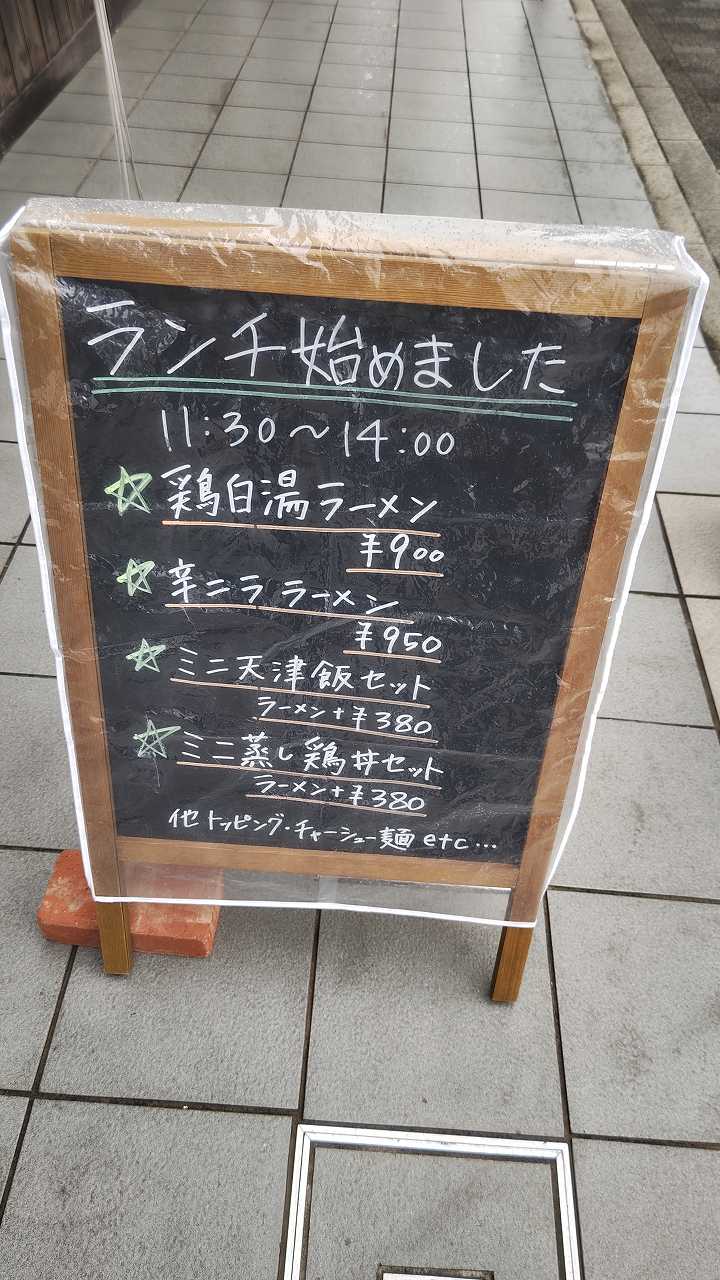 ランチ始めました
11:30〜14:00
☆鶏白湯ラーメン
¥900
☆辛ニラ ラーメン
¥950
☆ミニ天津飯セット
ラーメン+¥380
☆ミニ蒸し鶏丼セット
ラーメン+¥380
他トッピング・チャーシュー麺 etc...